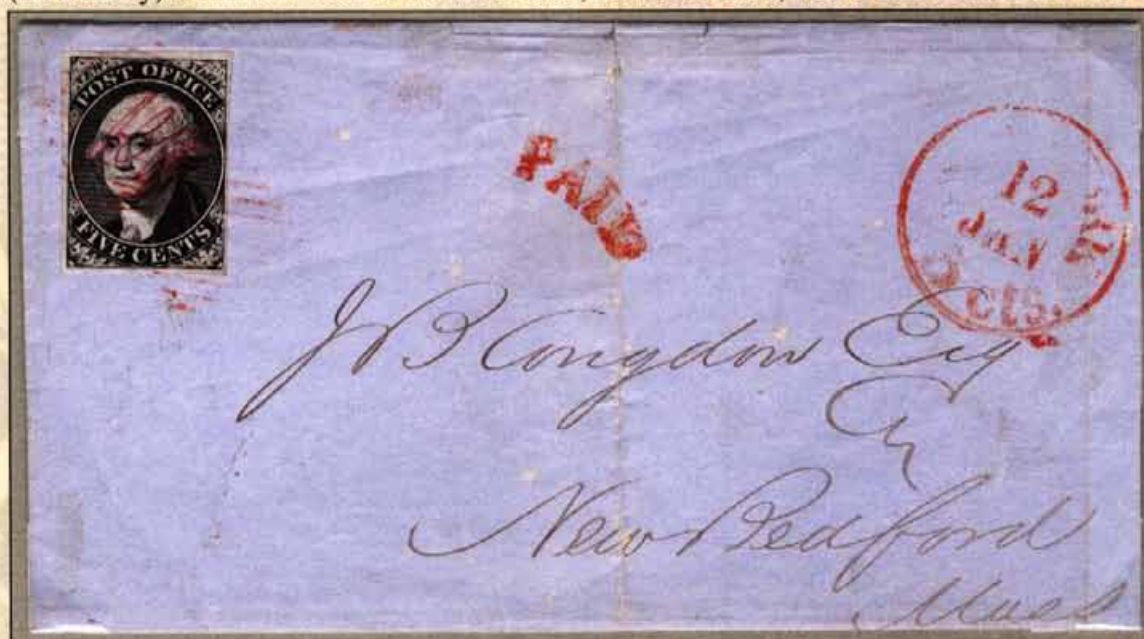 POST OFFICE
FIVE CENTS
PAID
12
JAN
cts.
J B Congdon Esq
New Bedford
Mass